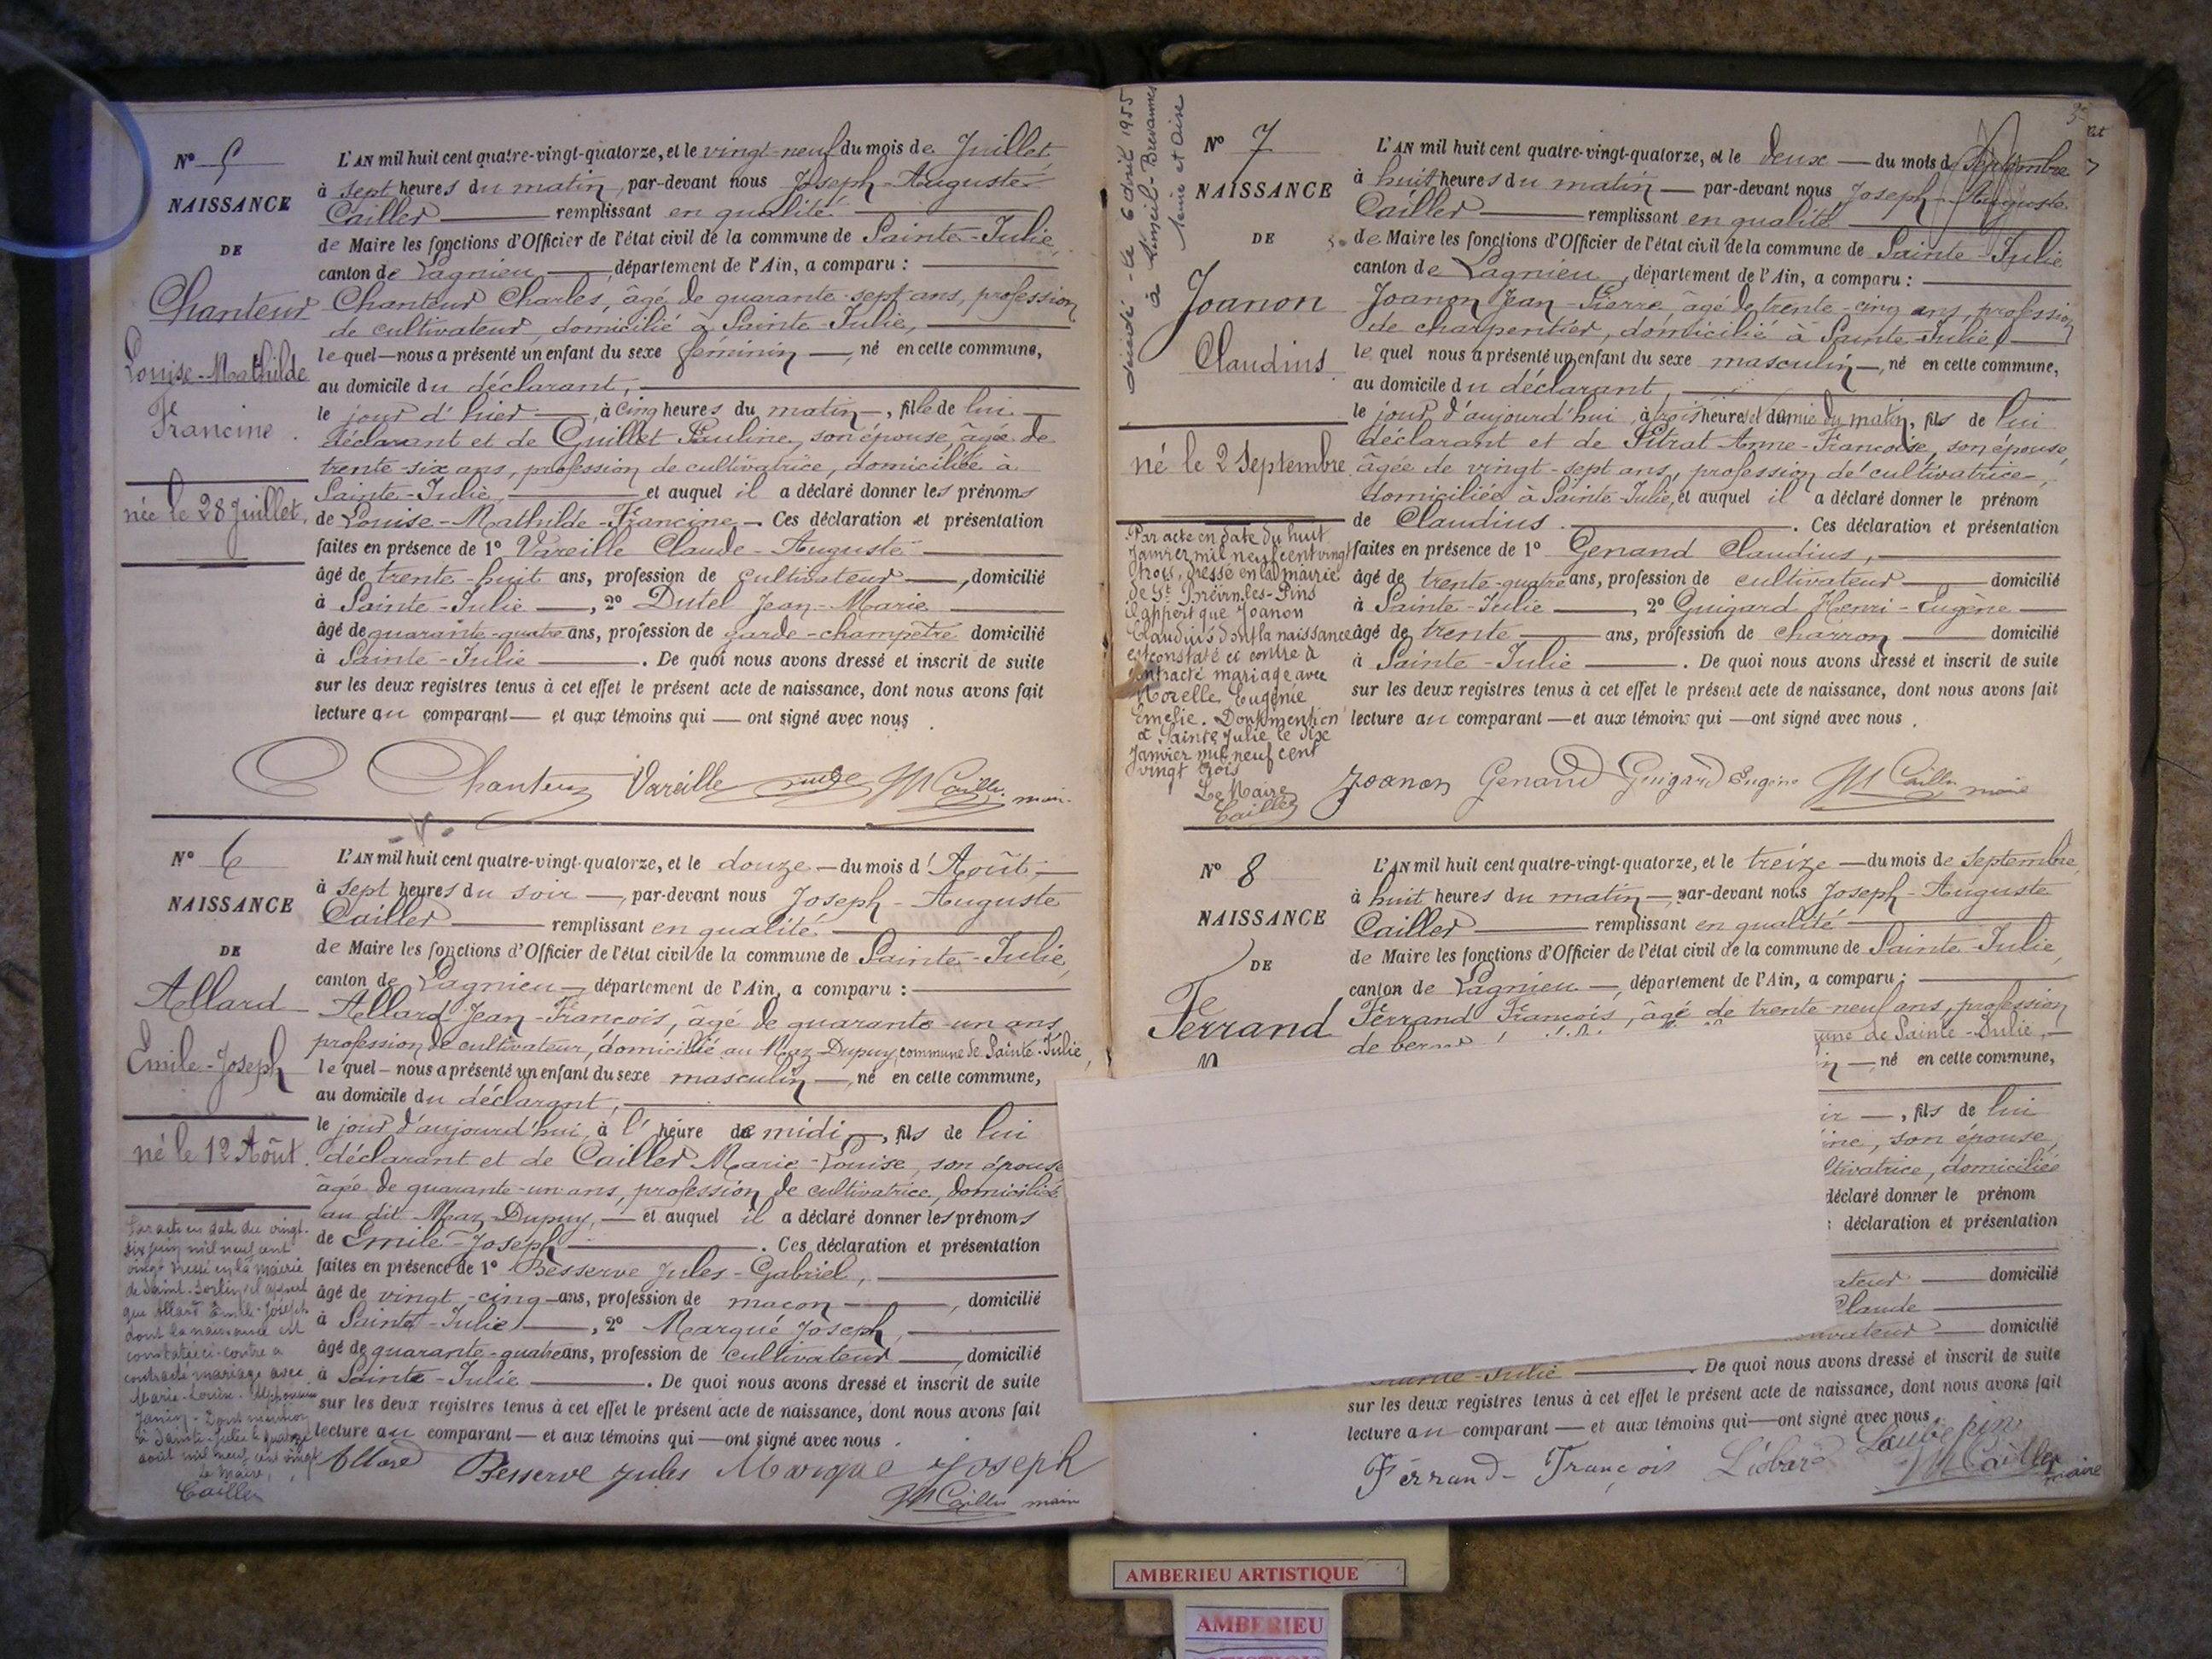 N° 5
NAISSANCE
DE
Chanteur
Louise-Mathilde
Francine.
née le 28 Juillet.
L'AN mil huit cent quatre-vingt-quatorze, et le vingt-neuf du mois de Juillet
à sept heures du matin, par-devant nous Joseph-Auguste
Cailler remplissant en qualité
de Maire les fonctions d'Officier de l'état civil de la commune de Sainte-Julie,
canton de Lagnieu, département de l'Ain, a comparu :
Chanteur Charles, âgé de quarante-sept ans, profession
de cultivateur, domicilié à Sainte-Julie,
lequel nous a présenté un enfant du sexe féminin, né en cette commune,
au domicile du déclarant,
le jour d'hier, à cinq heures du matin, fille de lui
déclarant et de Guillet Pauline, son épouse, âgée de
trente-six ans, profession de cultivatrice, domiciliée à
Sainte-Julie, et auquel il a déclaré donner les prénoms
de Louise-Mathilde-Francine. Ces déclaration et présentation
faites en présence de 1° Vareille Claude-Auguste
âgé de trente-huit ans, profession de cultivateur, domicilié
à Sainte-Julie, 2° Dutel Jean-Marie
âgé de quarante-quatre ans, profession de garde-champêtre domicilié
à Sainte-Julie. De quoi nous avons dressé et inscrit de suite
sur les deux registres tenus à cet effet le présent acte de naissance, dont nous avons fait
lecture au comparant et aux témoins qui ont signé avec nous.
Chanteur Vareille Cailler maire
N° 6
NAISSANCE
DE
Allard
Emile-Joseph
né le 12 Août.
Par acte en date du vingt-
six juin mil neuf cent
vingt dressé en la mairie
de Saint-Sorlin, il appert
que Allard Emile-Joseph
dont la naissance est
constatée ci-contre a
contracté mariage avec
Marie-Louise-Alphonsine
Janin. Dont mention
à Sainte-Julie le quatorze
août mil neuf cent vingt
Le Maire,
Cailler
L'AN mil huit cent quatre-vingt-quatorze, et le douze du mois d'Août
à sept heures du soir, par-devant nous Joseph-Auguste
Cailler remplissant en qualité
de Maire les fonctions d'Officier de l'état civil de la commune de Sainte-Julie,
canton de Lagnieu, département de l'Ain, a comparu :
Allard Jean-François, âgé de quarante-un ans,
profession de cultivateur, domicilié au Maz-Dupuy, commune de Sainte-Julie,
lequel nous a présenté un enfant du sexe masculin, né en cette commune,
au domicile du déclarant,
le jour d'aujourd'hui, à l'heure de midi, fils de lui
déclarant et de Cailler Marie-Louise, son épouse
âgée de quarante-un ans, profession de cultivatrice, domiciliée
au dit Maz-Dupuy, et auquel il a déclaré donner les prénoms
de Emile-Joseph. Ces déclaration et présentation
faites en présence de 1° Besserve Jules-Gabriel,
âgé de vingt-cinq ans, profession de maçon, domicilié
à Sainte-Julie, 2° Marqué Joseph,
âgé de quarante-quatre ans, profession de cultivateur, domicilié
à Sainte-Julie. De quoi nous avons dressé et inscrit de suite
sur les deux registres tenus à cet effet le présent acte de naissance, dont nous avons fait
lecture au comparant et aux témoins qui ont signé avec nous.
Allard Besserve Jules Marque Joseph
Cailler maire
décédé le 6 avril 1955
à Limeil-Brevannes
Seine et Oise
N° 7
NAISSANCE
DE
Joanon
Claudius
né le 2 Septembre
Par acte en date du huit
Janvier mil neuf cent vingt
trois, dressé en la mairie
de St Brévin-les-Pins
il appert que Joanon
Claudius dont la naissance
est constaté ci contre à
contracté mariage avec
Morelle Eugénie
Emélie. Dont mention
à Sainte Julie le dix
Janvier mil neuf cent
vingt trois
Le Maire
Cailler
L'AN mil huit cent quatre-vingt-quatorze, et le deux du mois de Septembre
à huit heures du matin par-devant nous Joseph-Auguste
Cailler remplissant en qualité
de Maire les fonctions d'Officier de l'état civil de la commune de Sainte-Julie
canton de Lagnieu, département de l'Ain, a comparu :
Joanon Jean-Pierre, âgé de trente-cinq ans, profession
de charpentier, domicilié à Sainte-Julie,
lequel nous a présenté un enfant du sexe masculin, né en cette commune,
au domicile du déclarant
le jour d'aujourd'hui, à trois heures et demie du matin, fils de lui
déclarant et de Pitrat Anne-Françoise, son épouse,
âgée de vingt-sept ans, profession de cultivatrice,
domiciliée à Sainte-Julie, et auquel il a déclaré donner le prénom
de Claudius. Ces déclaration et présentation
faites en présence de 1° Genand Claudius,
âgé de trente-quatre ans, profession de cultivateur domicilié
à Sainte-Julie, 2° Guigard Henri-Eugène
âgé de trente ans, profession de charron domicilié
à Sainte-Julie. De quoi nous avons dressé et inscrit de suite
sur les deux registres tenus à cet effet le présent acte de naissance, dont nous avons fait
lecture au comparant et aux témoins qui ont signé avec nous.
Joanon Genand Guigard Eugène Cailler maire
N° 8
NAISSANCE
DE
Ferrand
L'AN mil huit cent quatre-vingt-quatorze, et le treize du mois de Septembre,
à huit heures du matin, par-devant nous Joseph-Auguste
Cailler remplissant en qualité
de Maire les fonctions d'Officier de l'état civil de la commune de Sainte-Julie,
canton de Lagnieu, département de l'Ain, a comparu :
Ferrand François, âgé de trente-neuf ans, profession
de
de Sainte-Julie,
né en cette commune,
, fils de lui
son épouse,
domiciliée
déclaré donner le prénom
déclaration et présentation
domicilié
Claude
domicilié
De quoi nous avons dressé et inscrit de suite
sur les deux registres tenus à cet effet le présent acte de naissance, dont nous avons fait
lecture au comparant et aux témoins qui ont signé avec nous.
Ferrand François Liobard Laubepin
Cailler maire
AMBERIEU ARTISTIQUE
AMBERIEU